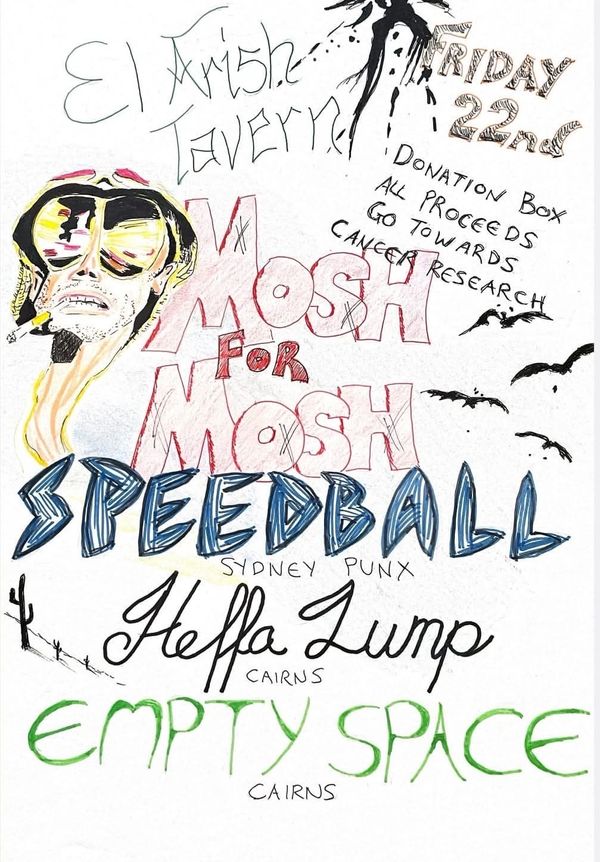 El Arish
Tavern
FRIDAY
22nd
DONATION BOX
ALL PROCEEDS
GO TOWARDS
CANCER RESEARCH
MOSH
FOR
MOSH
SPEEDBALL
SYDNEY PUNX
Heffa Lump
CAIRNS
EMPTY SPACE
CAIRNS